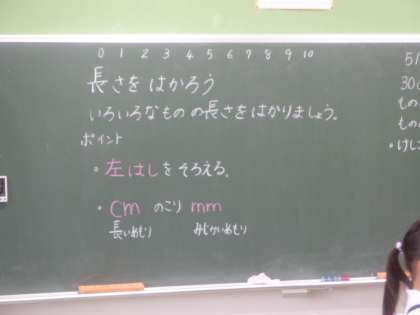 0 1 2 3 4 5 6 7 8 9 10
長さをはかろう
いろいろなものの長さをはかりましょう。
ポイント
・左はしをそろえる。
・cm のこり mm
長いめもり みじかいめもり
51
300
もの
もの
・けしご